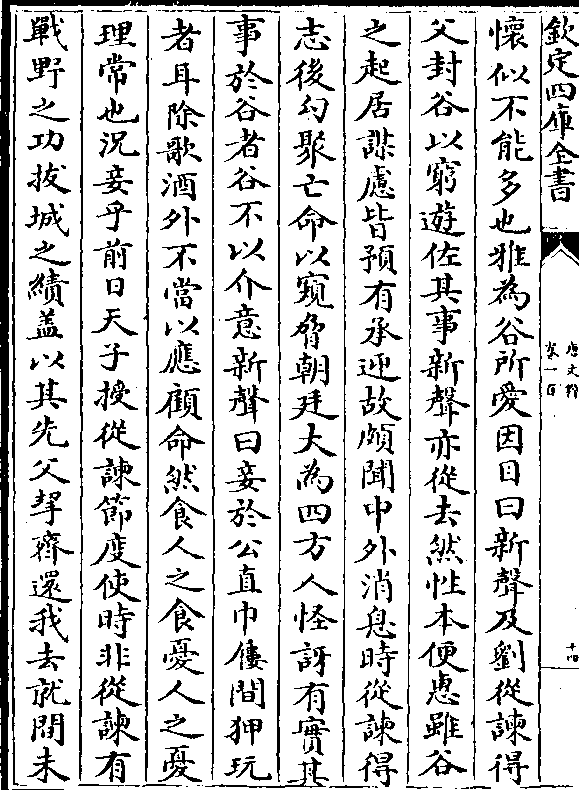 欽定四庫全書
唐文粹
卷一百
十四
懷似不能多也雅為谷所愛因目曰新聲及劉從諫得
父封谷以窮遊佐其事新聲亦從去然性本便慧雖谷
之起居謀慮皆預有承迎故頗聞中外消息時從諫得
志後勾聚亡命以窺脅朝廷大為四方人怪訝有實其
事於谷者谷不以介意新聲曰妾於公直巾僂間狎玩
者耳除歌酒外不當以應顧命然食人之食憂人之憂
理常也況妾乎前日天子授從諫節度使時非從諫有
戰野之功拔城之績蓋以其先父挈齊還我去就間未